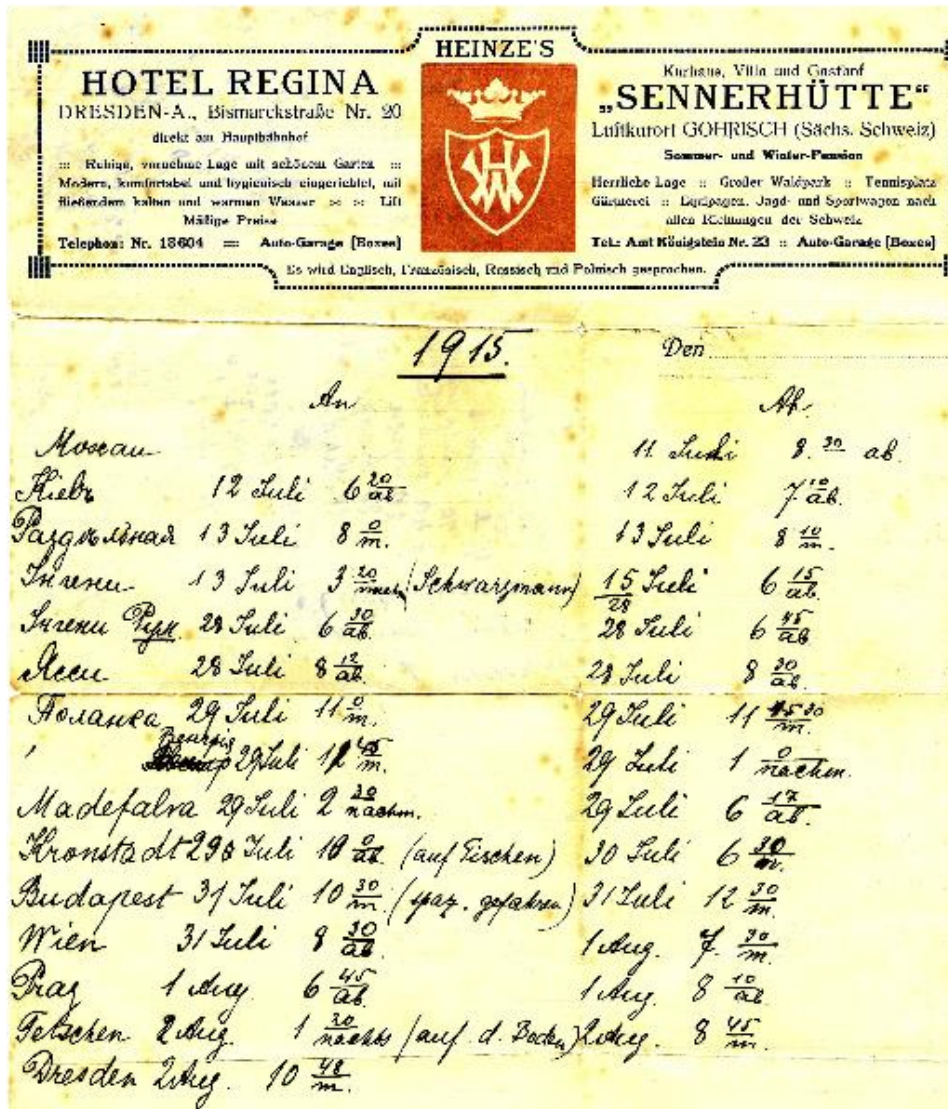 HEINZE'S
HOTEL REGINA
DRESDEN-A., Bismarckstraße Nr. 20
direkt am Hauptbahnhof
::: Ruhige, vornehme Lage mit schönem Garten :::
Modern, komfortabel und hygienisch eingerichtet, mit
fließendem kalten und warmen Wasser :: :: Lift
Mäßige Preise
Telephon: Nr. 18604 ::: Auto-Garage [Boxes]
Kurhaus, Villa und Gasthof
„SENNERHÜTTE“
Luftkurort GOHRISCH (Sächs. Schweiz)
Sommer- und Winter-Pension
Herrliche Lage :: Großer Waldpark :: Tennisplatz
Gärtnerei :: Equipagen, Jagd- und Sportwagen nach
allen Richtungen der Schweiz
Tel.: Amt Königstein Nr. 23 :: Auto-Garage [Boxes]
Es wird Englisch, Französisch, Russisch und Polnisch gesprochen.
1915.
Den
An Ab.
Moscau 11 Juli 8.30 ab.
Kiebъ 12 Juli 6 20 ab 12 Juli 7 10 ab.
Раздѣльная 13 Juli 8 0 m. 13 Juli 8 10 m.
Унгени 13 Juli 3 20 nach (Schwarzmann) 15/28 Juli 6 15 ab.
Унгени Рум 28 Juli 6 30 ab. 28 Juli 6 45 ab.
Ясси 28 Juli 8 12 ab. 28 Juli 8 20 ab.
Поланка 29 Juli 11 0 m. 29 Juli 11 30 m.
Венгрія 29 Juli 12 45 m. 29 Juli 1 0 nachm.
Madefalva 29 Juli 2 30 nachm. 29 Juli 6 17 ab.
Kronstadt 29 Juli 10 0 ab. (auf Tischen) 30 Juli 6 30 m.
Budapest 31 Juli 10 30 m. (spaz. gefahren) 31 Juli 12 30 m.
Wien 31 Juli 8 30 ab. 1 Aug. 7. 30 m.
Prag 1 Aug. 6 45 ab. 1 Aug. 8 10 ab.
Tetschen 2 Aug. 1 20 nachts (auf d. Boden) 2 Aug. 8 45 m.
Dresden 2 Aug. 10 48 m.